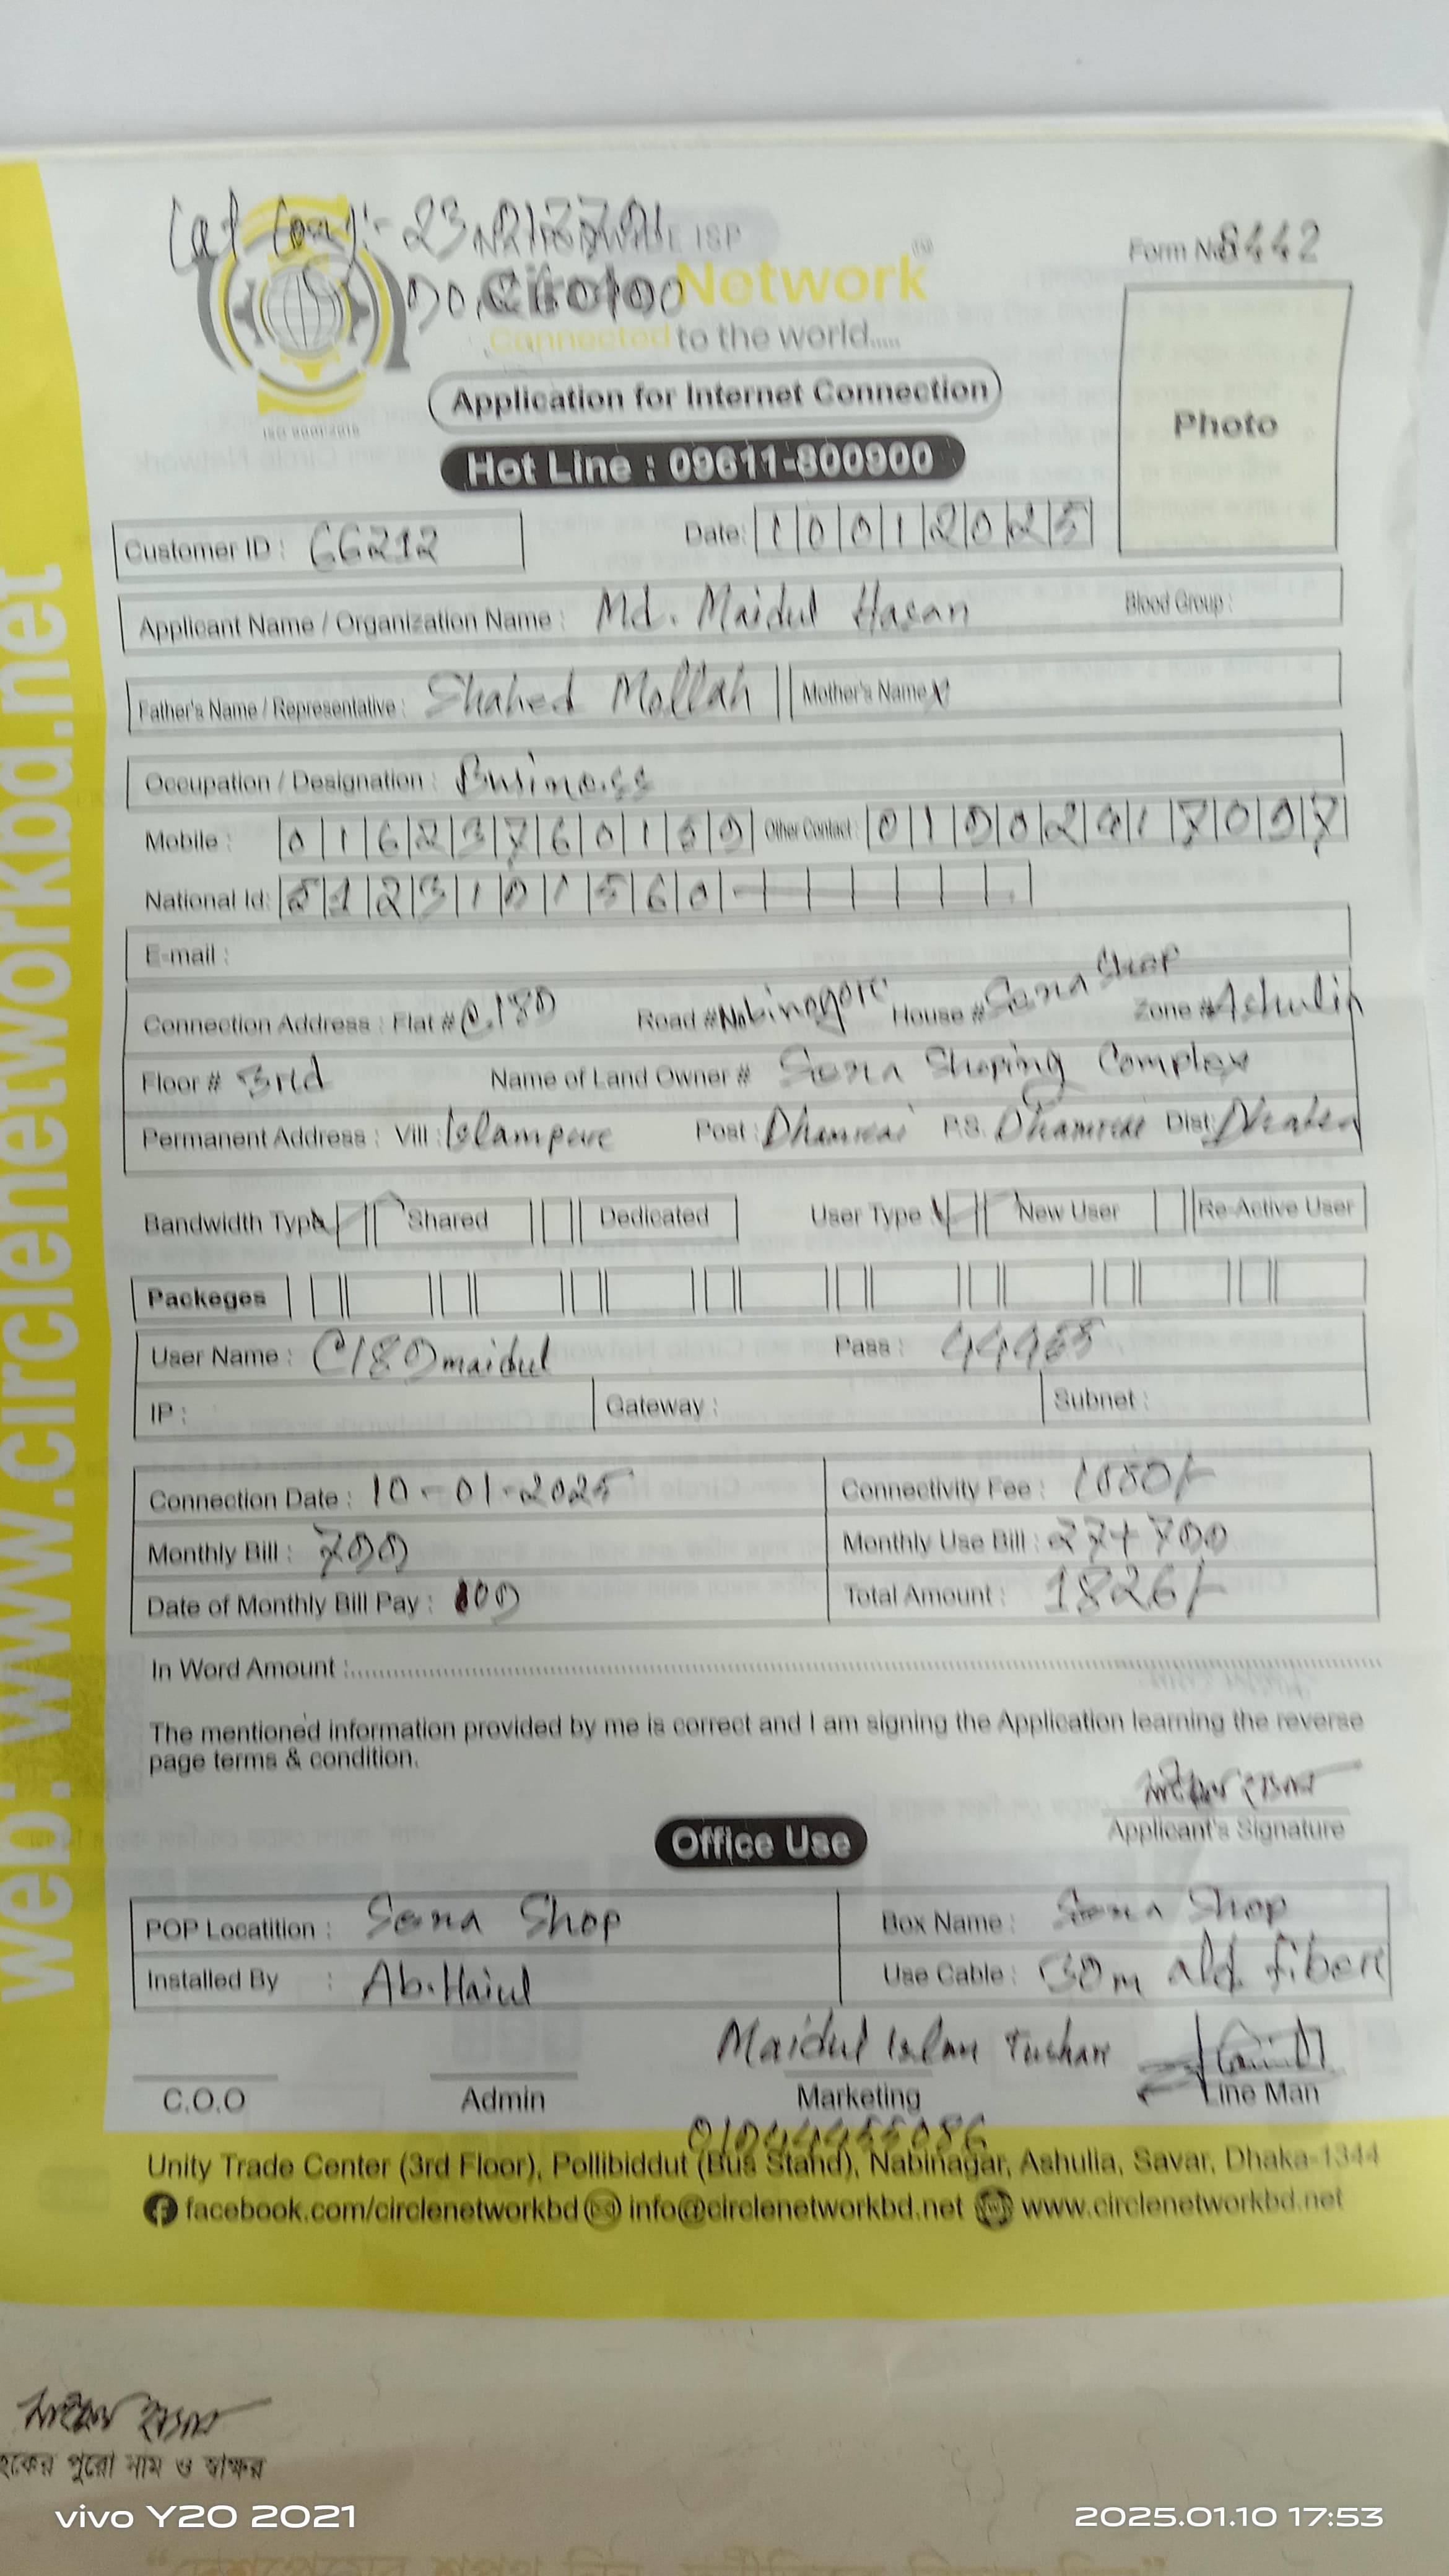 Lat Long:-
NATIONWIDE ISP
Circle Network
Connected to the world.....
Form No 8442
Application for Internet Connection
Photo
Hot Line : 09611-800900
Customer ID : 66212 Date: 10012025
Applicant Name / Organization Name : Md. Maidul Hasan Blood Group :
Father's Name / Representative : Shahed Mollah Mother's Name X
Occupation / Designation : Business
Mobile : Other Contact :
National Id: 5123101560
E-mail :
Connection Address : Flat # C.180 Road # Nobinogor House # Sena Shop Zone # Ashulia
Floor # 3rd Name of Land Owner # Sena Shoping Complex
Permanent Address : Vill : Islampur Post : Dhamrai P.S. Dhamrai Dist: Dhaka
Bandwidth Type Shared Dedicated User Type New User Re-Active User
Packeges
User Name : C180maidul Pass :
IP : Gateway : Subnet :
Connection Date : 10-01-2025 Connectivity Fee :
Monthly Bill : 700 Monthly Use Bill :
Date of Monthly Bill Pay : Total Amount : 1826/-
In Word Amount :
The mentioned information provided by me is correct and I am signing the Application learning the reverse
page terms & condition.
Applicant's Signature
Office Use
POP Locatition : Sena Shop Box Name : Sena Shop
Installed By : Use Cable : 30m old fiber
Maidul Islam Tushar
C.O.O Admin Marketing Line Man
Unity Trade Center (3rd Floor), Pollibiddut (Bus Stand), Nabinagar, Ashulia, Savar, Dhaka-1344
facebook.com/circlenetworkbd info@circlenetworkbd.net www.circlenetworkbd.net
web: www.circlenetworkbd.net
পুরো নাম ও স্বাক্ষর
vivo Y20 2021 2025.01.10 17:53